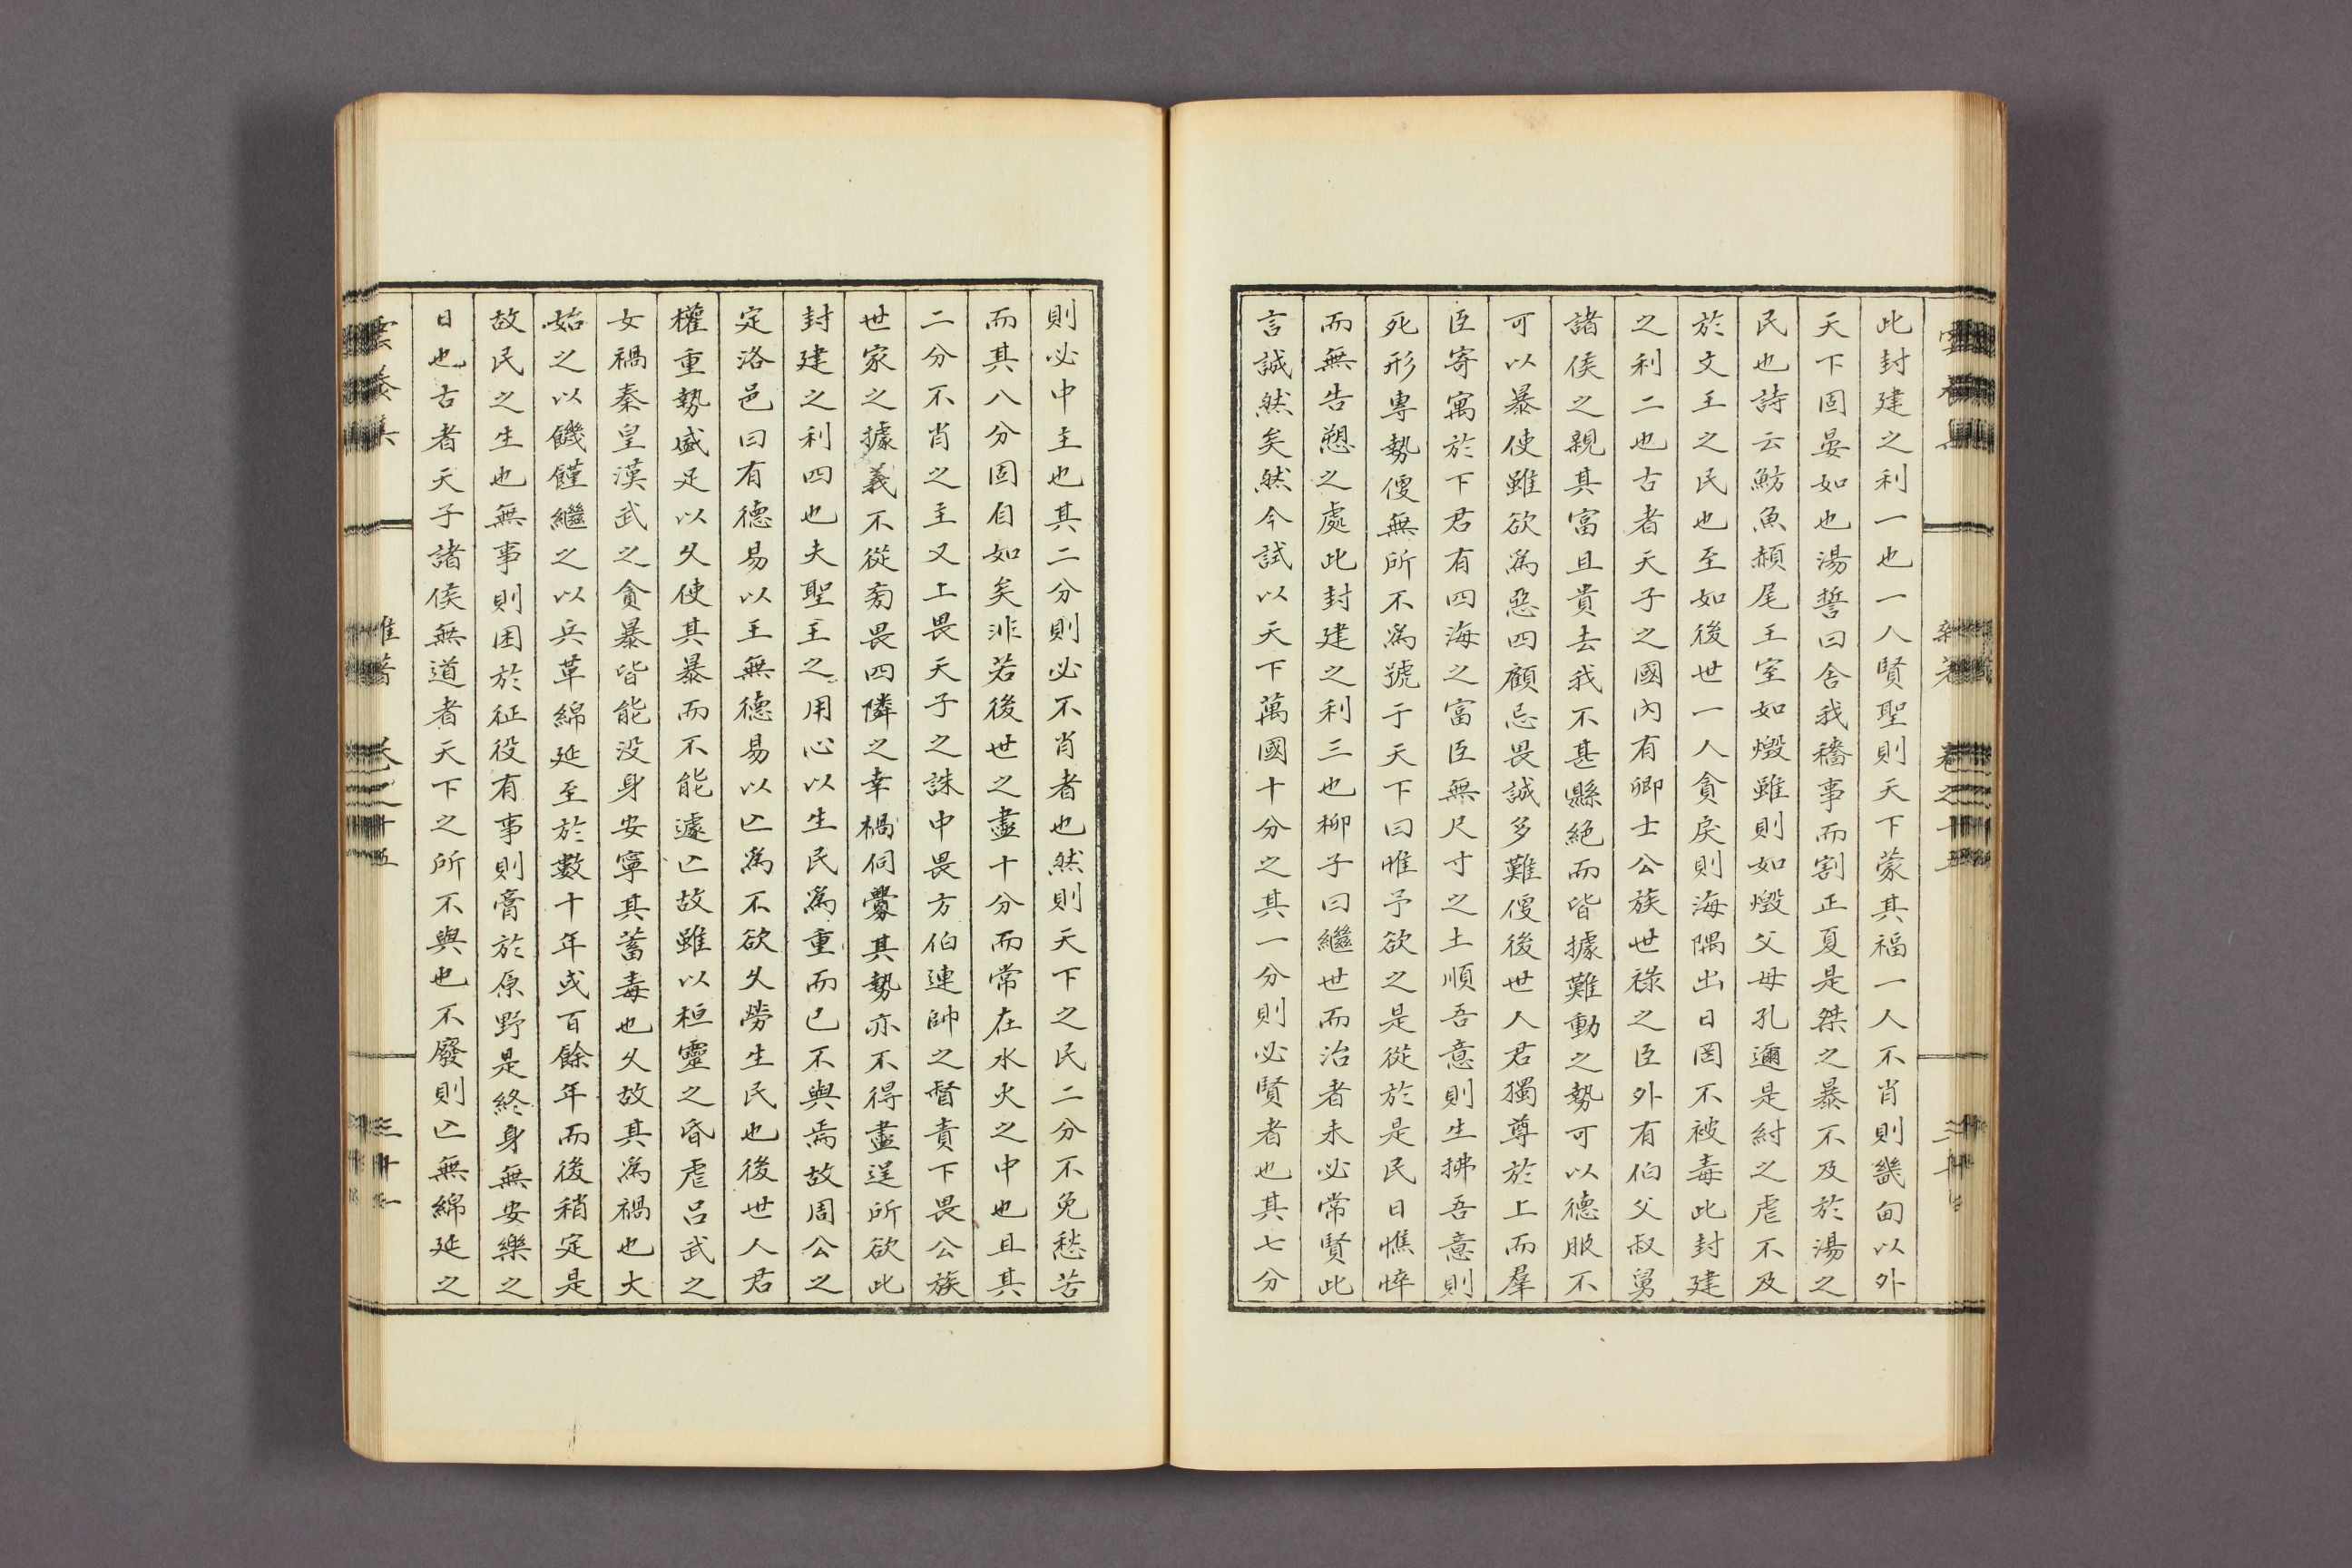 此封建之利一也一人賢聖則天下蒙其福一人不肖則畿甸以外
天下固晏如也湯誓曰舍我穡事而割正夏是桀之暴不及於湯之
民也詩云魴魚赬尾王室如燬雖則如燬父母孔邇是紂之虐不及
於文王之民也至如後世一人貪戾則海隅出日罔不被毒此封建
之利二也古者天子之國內有卿士公族世祿之臣外有伯父叔舅
諸侯之親其富且貴去我不甚縣絕而皆據難動之勢可以德服不
可以暴使雖欲爲惡四顧忌畏誠多難便後世人君獨尊於上而羣
臣寄寓於下君有四海之富臣無尺寸之土順吾意則生拂吾意則
死形專勢便無所不爲號于天下曰惟予欲之是從於是民日憔悴
而無告愬之處此封建之利三也柳子曰繼世而治者未必常賢此
言誠然矣然今試以天下萬國十分之其一分則必賢者也其七分
則必中主也其二分則必不肖者也然則天下之民二分不免愁苦
而其八分固自如矣非若後世之盡十分而常在水火之中也且其
二分不肖之主又上畏天子之誅中畏方伯連帥之督責下畏公族
世家之據義不從旁畏四隣之幸禍伺釁其勢亦不得盡逞所欲此
封建之利四也夫聖王之用心以生民爲重而已不與焉故周公之
定洛邑曰有德易以王無德易以亾爲不欲久勞生民也後世人君
權重勢盛足以久使其暴而不能遽亾故雖以桓靈之昏虐呂武之
女禍秦皇漢武之貪暴皆能没身安寧其蓄毒也久故其爲禍也大
始之以饑饉繼之以兵革綿延至於數十年或百餘年而後稍定是
故民之生也無事則困於征役有事則膏於原野是終身無安樂之
日也古者天子諸侯無道者天下之所不與也不廢則亾無綿延之